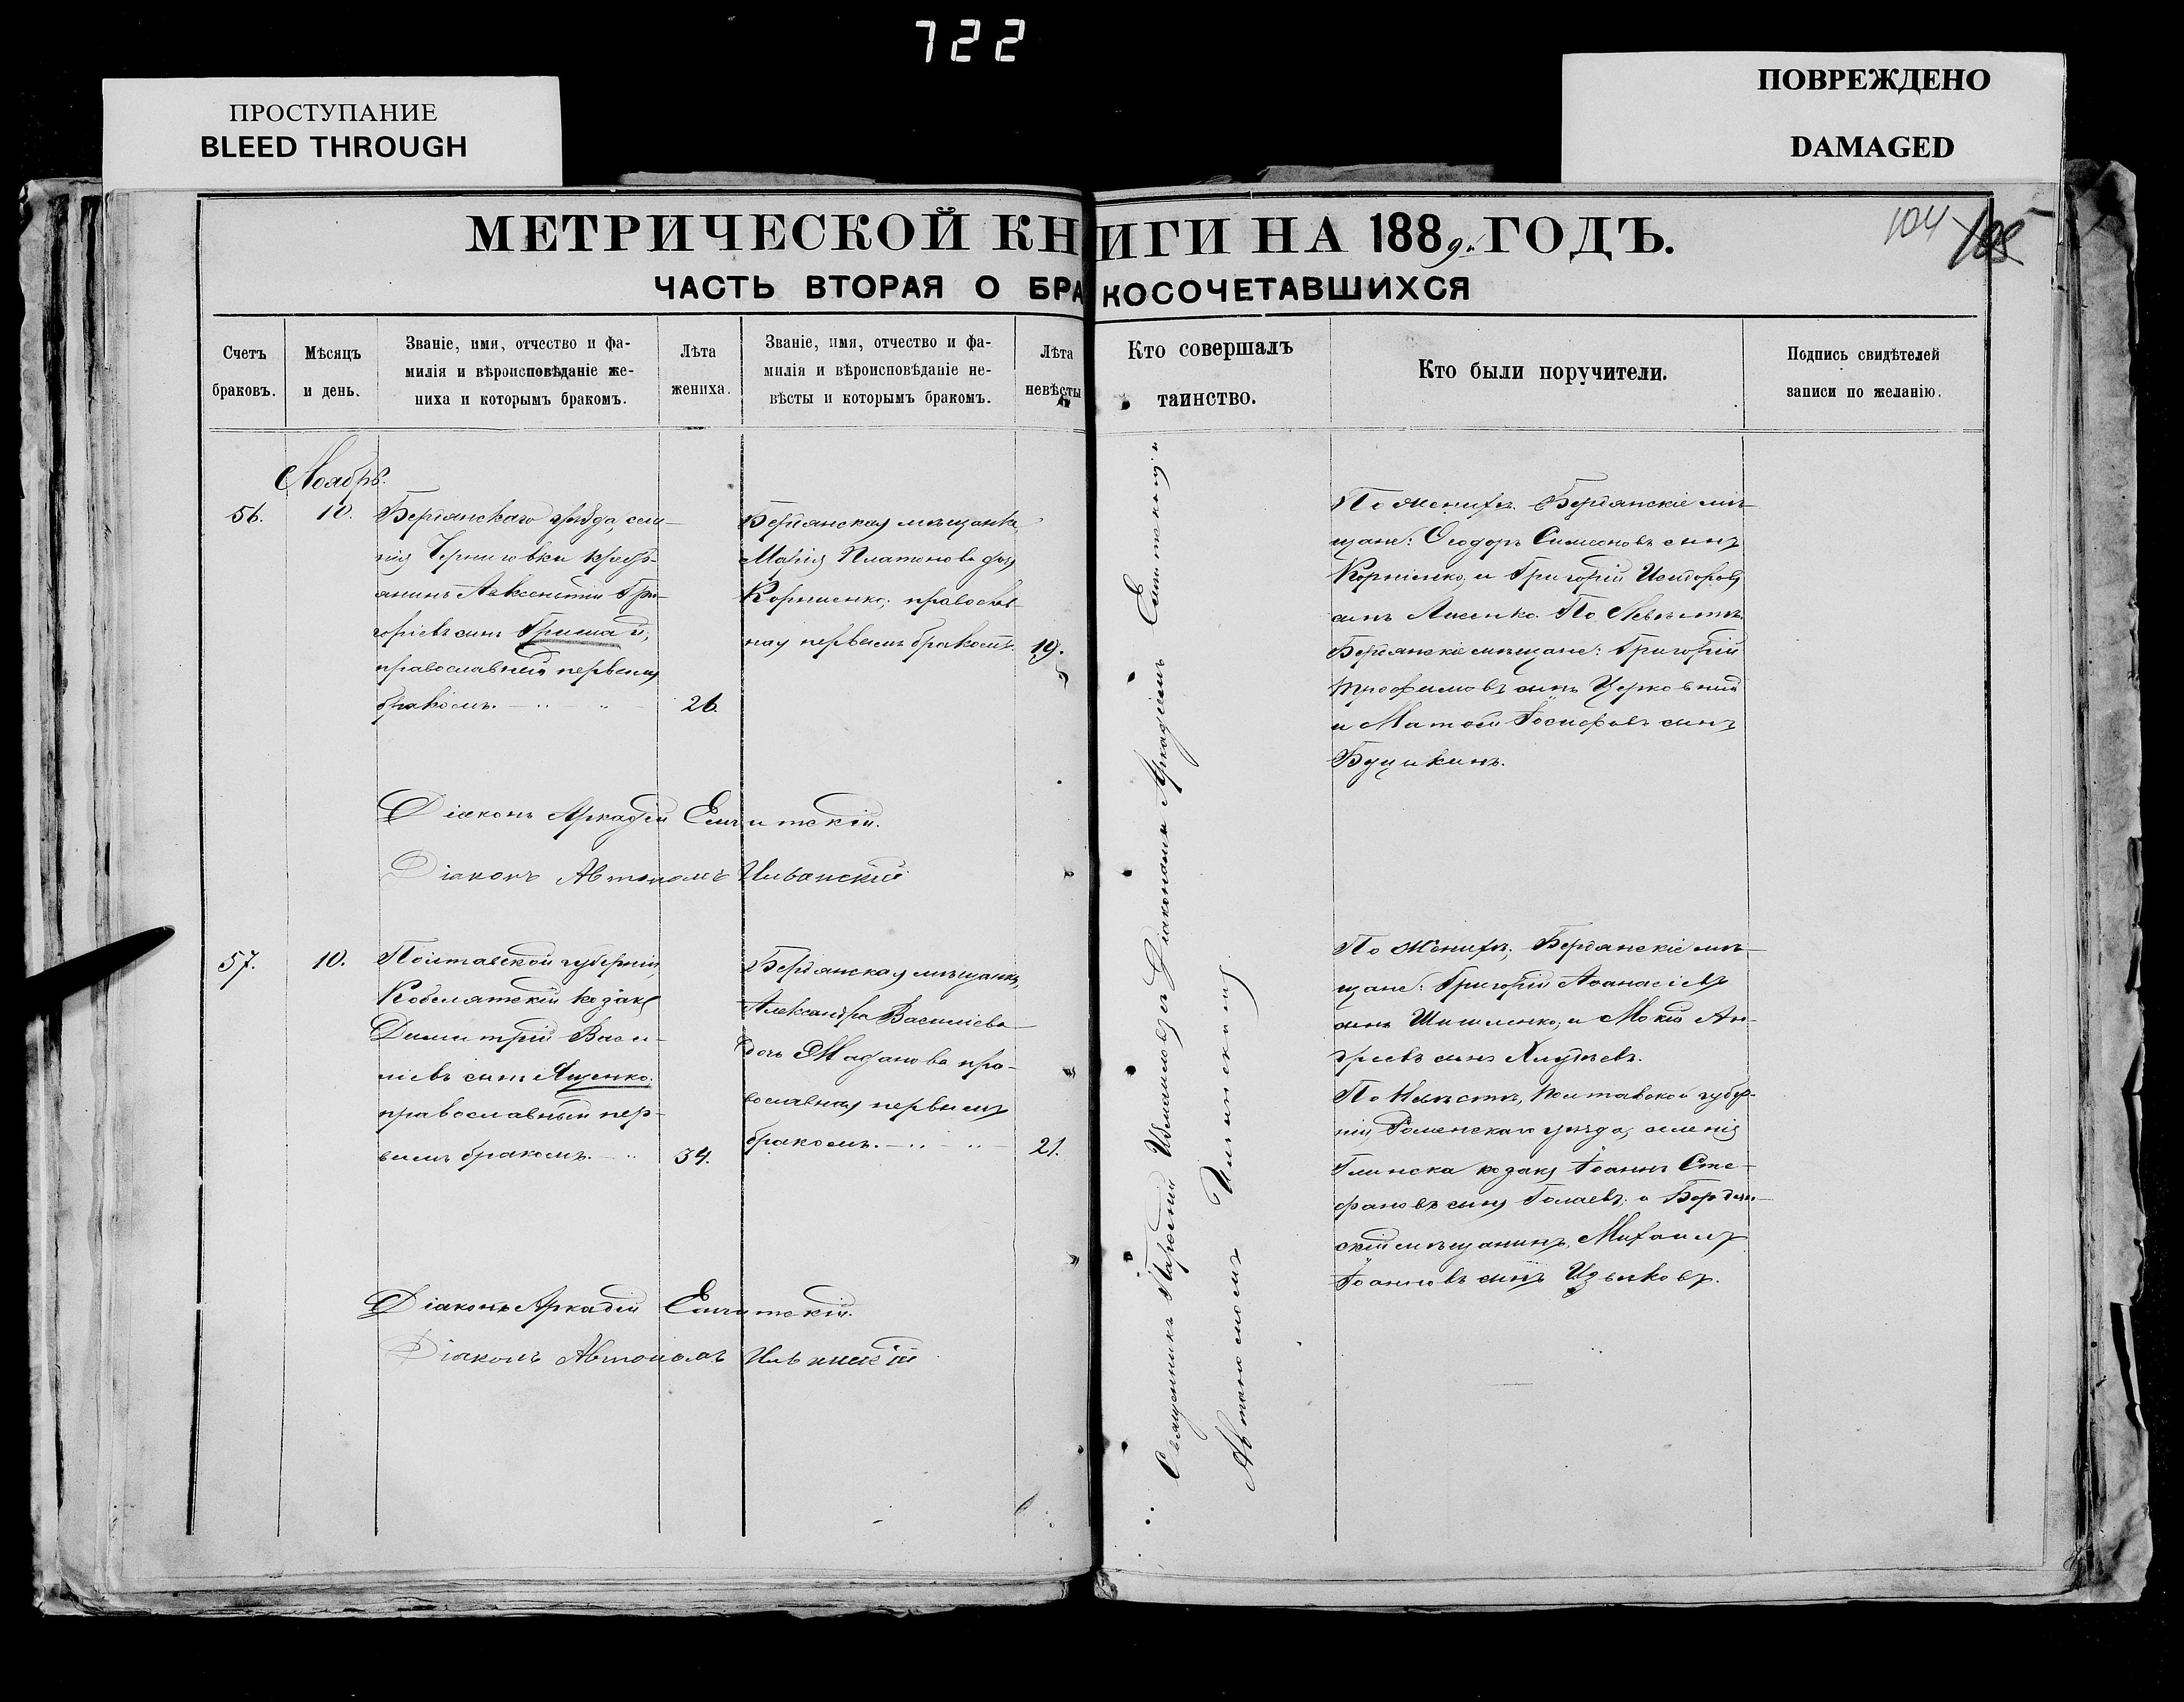 722
ПРОСТУПАНИЕ
BLEED THROUGH
ПОВРЕЖДЕНО
DAMAGED
МЕТРИЧЕСКОЙ КНИГИ НА 1889 г. ГОДЪ.
104 105
ЧАСТЬ ВТОРАЯ О БРАКОСОЧЕТАВШИХСЯ
Счетъ
браковъ.
Мѣсяцъ
и день.
Званіе, имя, отчество и фа-
милія и вѣроисповѣданіе же-
ниха и которымъ бракомъ.
Лѣта
жениха.
Званіе, имя, отчество и фа-
милія и вѣроисповѣданіе не-
вѣсты и которымъ бракомъ.
Лѣта
невѣсты
Кто совершалъ
таинство.
Кто были поручители.
Подпись свидѣтелей
записи по желанію.
Ноябрь.
56.
10.
Бердянскаго уѣзда, селе-
нія Черниговки крест-
янинъ Авксентій Гри-
горіевъ сынъ
православный первымъ
бракомъ.
26.
Бердянская мѣщанка,
Марія Платонова дочь
Корниенко, православ-
ная первымъ бракомъ.
19.
По женихѣ: Бердянскіе мѣ-
щане: Ѳеодоръ Симеоновъ сынъ
Корніенко, и Григорій Исидоровъ
сынъ Лисенко. По Невѣстѣ:
Бердянскіе мѣщане: Григорій
Трофимовъ сынъ Церковный
и Матѳей Іосифовъ сынъ
Діаконъ Аркадій
Діаконъ Автономъ
57.
10.
Полтавской губерніи,
Кобелятскій козакъ
Димитрій Васи-
ліевъ сынъ Яценко,
православный пер-
вымъ бракомъ.
34.
Бердянская мѣщанка,
Александра Василіева
дочь Жаданова пра-
вославная первымъ
бракомъ.
21.
По Женихѣ: Бердянскіе мѣ-
щане: Григорій Аѳанасіевъ
сынъ Шишленко, и Мокій Ан-
дреевъ сынъ
По Невѣстѣ, Полтавской губер-
ніи Роменскаго уѣзда, селенія
Глинска козакъ Іоаннъ Сте-
фановъ сынъ Голаевъ, и Бердян-
скій мѣщанинъ, Михаилъ
Іоанновъ сынъ
Діаконъ Аркадій
Діаконъ Автономъ
Священникъ Пароеній съ Діаконами Аркадіемъ и
Автономомъ